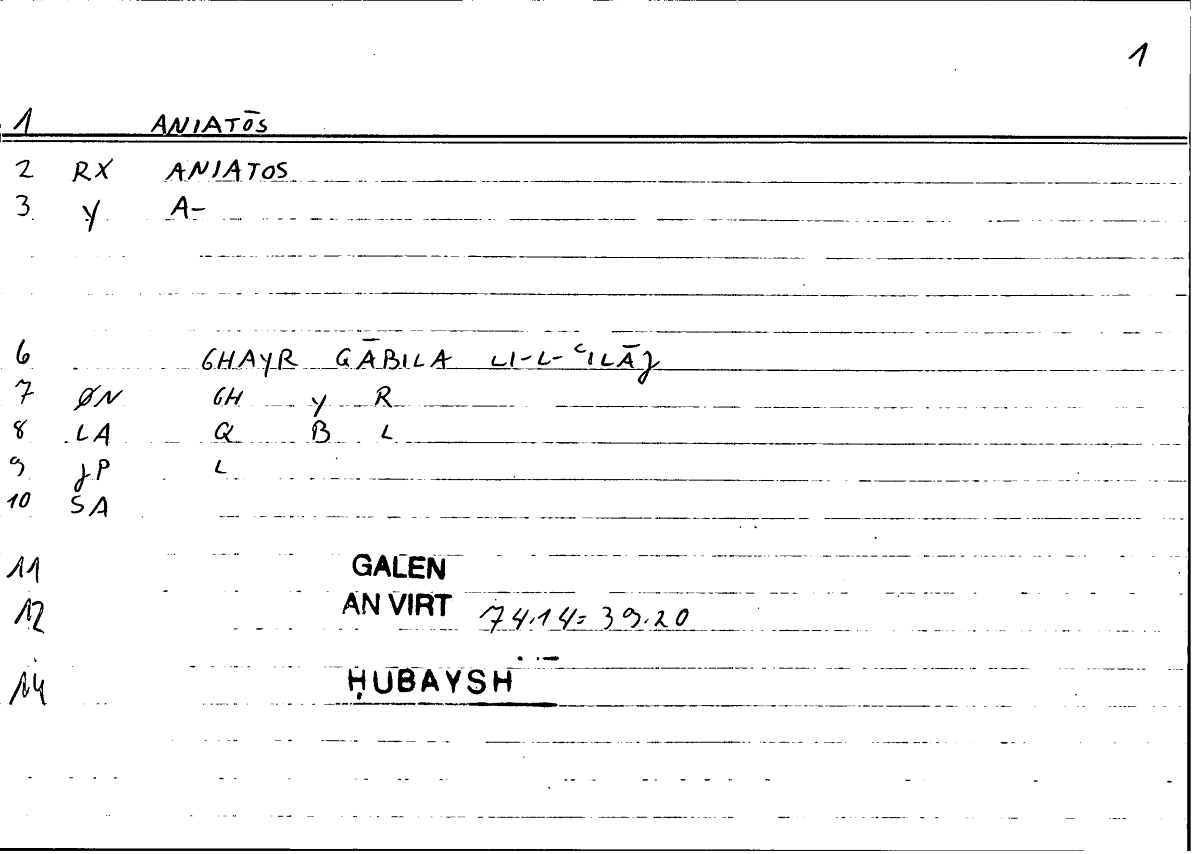 1
1 ANIATŌS
2 RX ANIATOS
3 Y A-
6 GHAYR QĀBILA LI-L-ʿILĀJ
7 ØN GH Y R
8 LA Q B L
9 JP L
10 SA
11 GALEN
12 AN VIRT 74.14=39.20
14 ḤUBAYSH